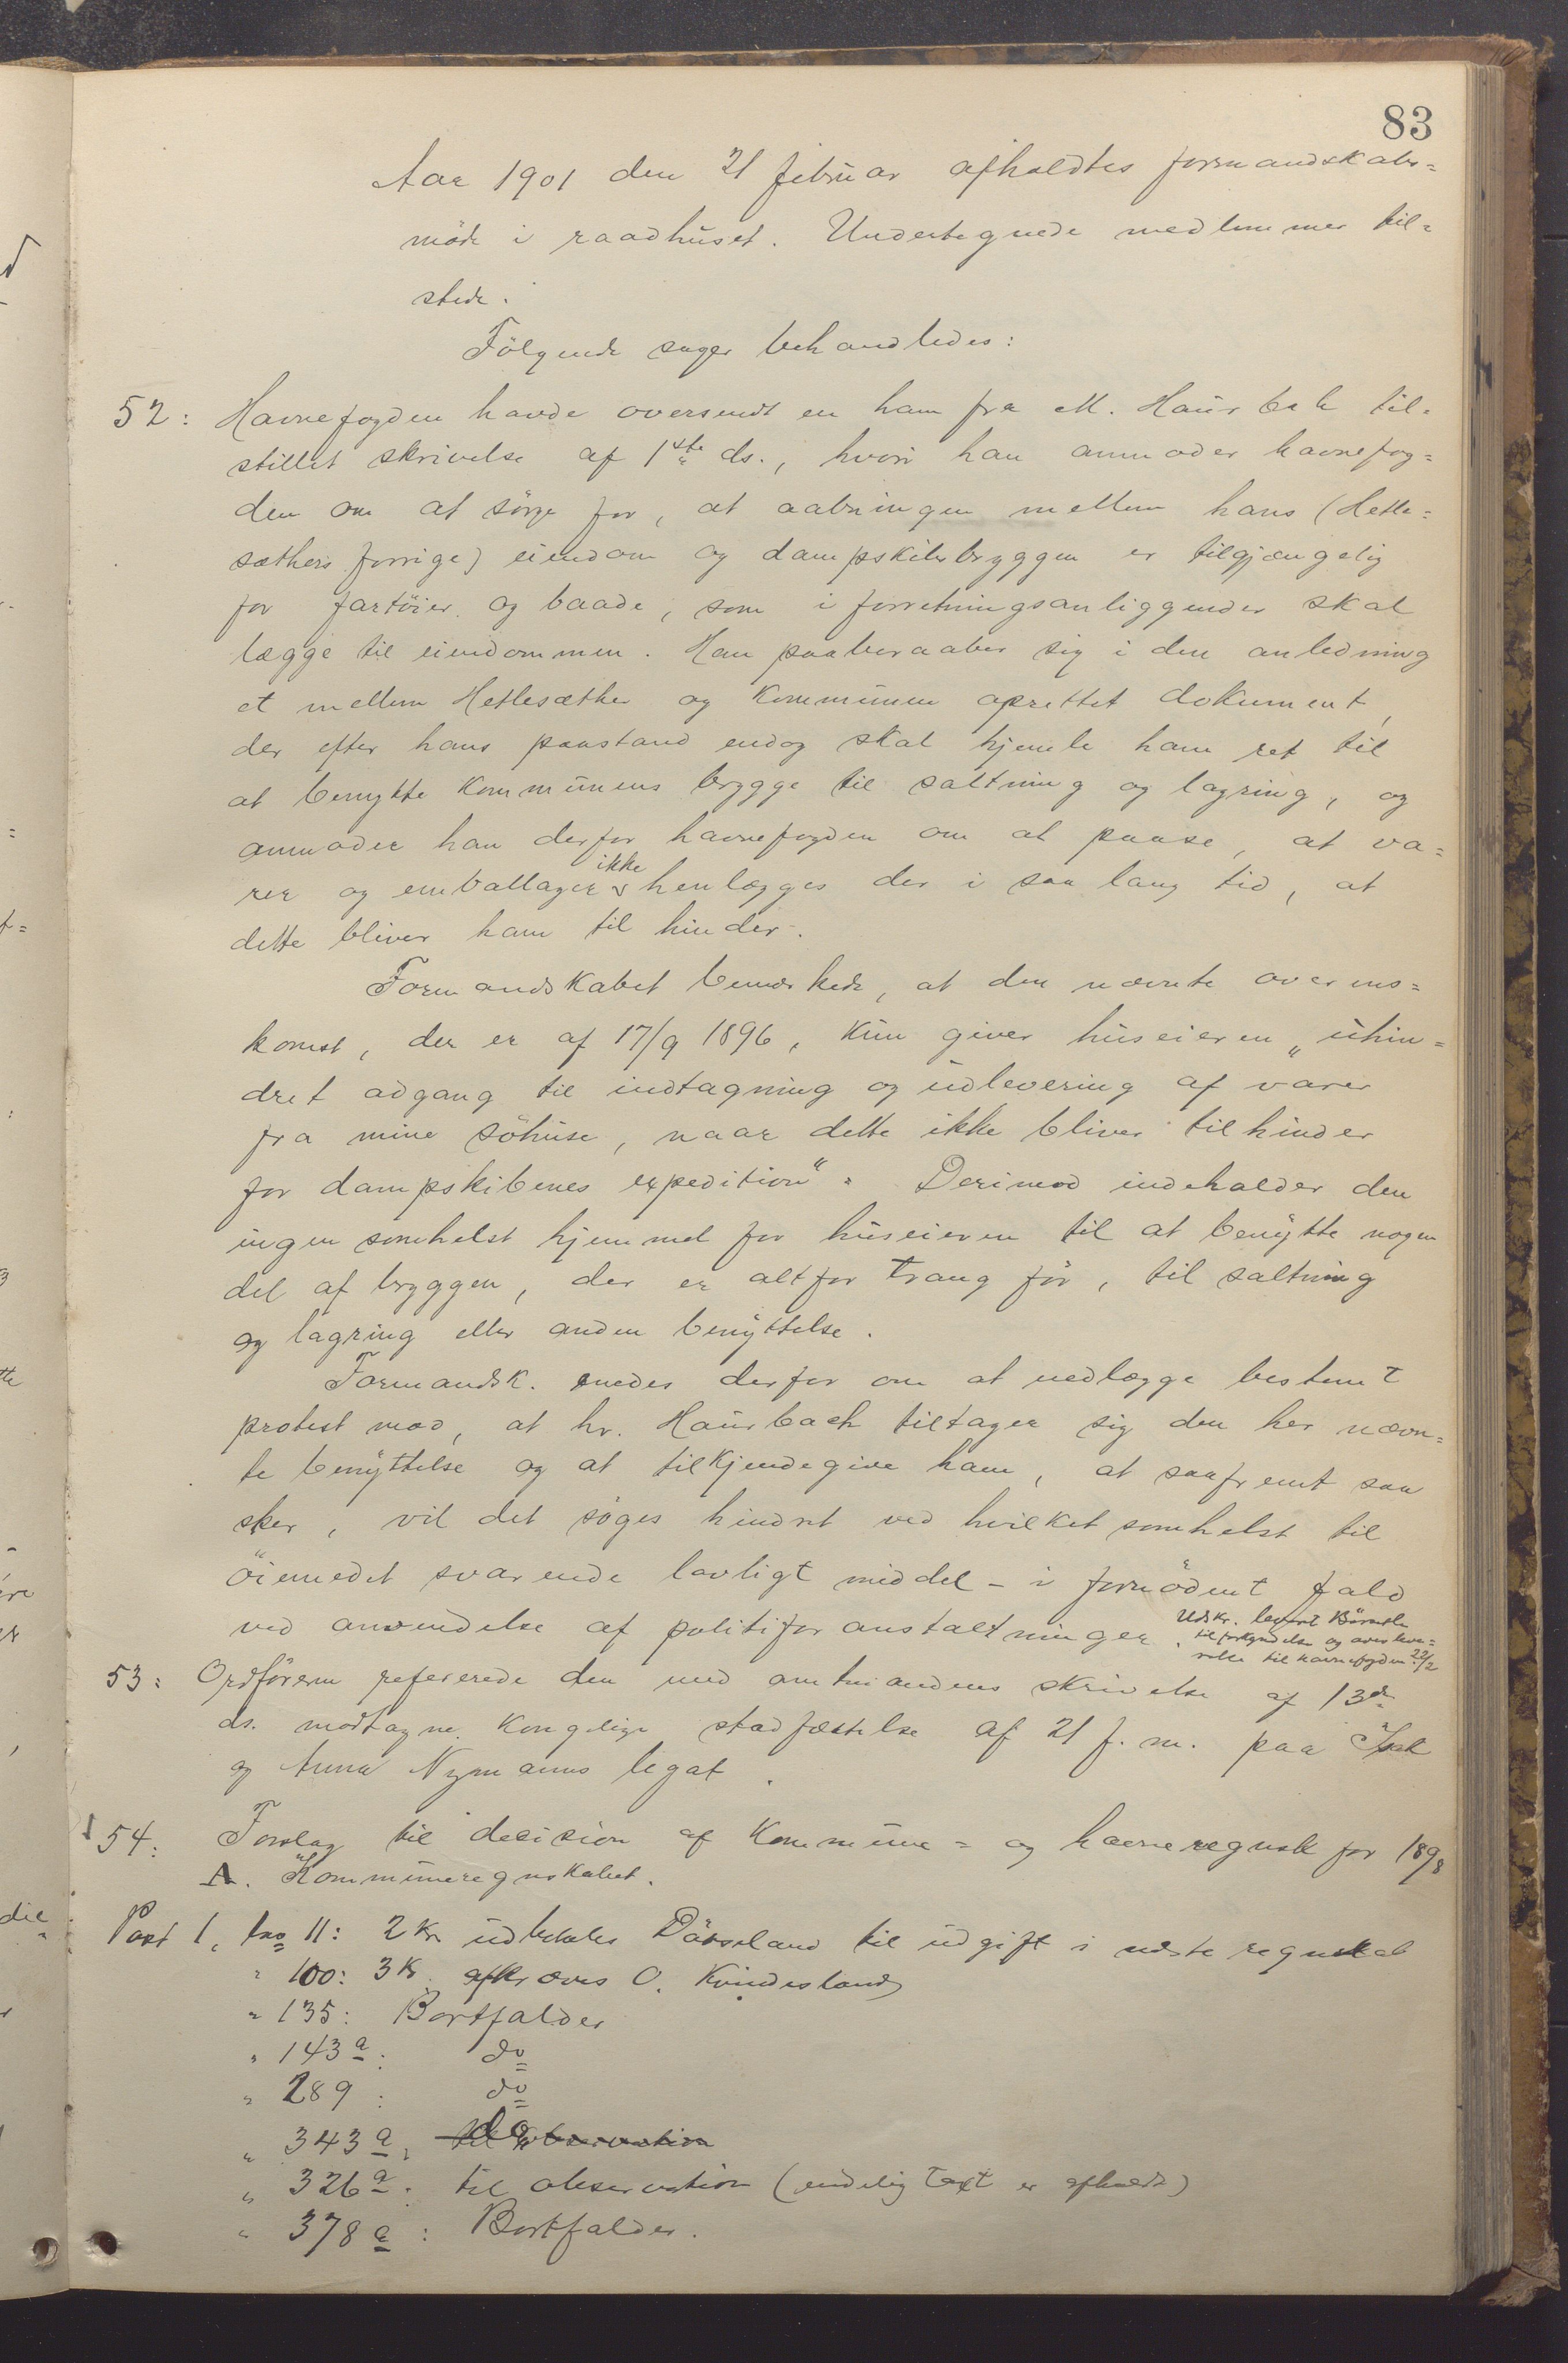 83
Aar 1901 den 21 februar afholdtes formandskabs=
møde i raadhuset. Undertegnede medlemmer til=
stede.
Følgende sager behandledes:
52: Havnefogden havde oversendt en ham fra M. Haurbak til=
stillet skrivelse af 1ste ds., hvori han anmoder havnefog=
den om at sørge for, at aabningen mellem hans (Hetle=
sæthers forrige) eiendom og dampskibsbryggen er tilgjængelig
for fartöier og baade, som i forretningsanliggender skal
lægge til eiendommen. Han paaberaaber sig i den anledning
et mellem Hetlesæther og kommunen oprettet dokument,
der efter hans paastand endog skal hjemle ham ret til
at benytte kommunens brygge til saltning og lagring, og
anmoder han derfor havnefogden om at paase, at va=
rer og emballager ikke henlægges der i saa lang tid, at
dette bliver ham til hinder.
Formandskabet bemærkede, at den nævnte overens=
komst, der er af 17/9 1896, kun giver huseieren „uhin=
dret adgang til indtagning og udlevering af varer
fra mine söhuse, naar dette ikke bliver til hinder
for dampskibenes expedition“. Derimod indeholder den
ingen somhelst hjemmel for huseieren til at benytte nogen
del af bryggen, der er altfor trang för, til saltning
og lagring eller anden benyttelse.
Formandsk. enedes derfor om at nedlægge bestemt
protest mod, at hr. Haurbach tiltager sig den her nævn=
te benyttelse og at tilkjendegive ham, at saafremt saa
sker, vil det søges hindret ved hvilket somhelst til
öiemedet svarende lovligt middel - i fornödent fald
ved anvendelse af politiforanstaltninger.
Udskr. levert
til forkyndelse og
til havnefogden 22/2
53: Ordføreren refererede den med amtmandens skrivelse af 13de
ds. modtagne kongelige stadfæstelse af 21 f. m. paa
og Anna Nymanns legat.
54: Forslag til decision af kommune= og havneregnsk for 1898
A. Kommuneregnskabet.
Post 1, 11: 2 kr udbetales til udgift i næste regnskab
" 100: 3 kr. afkræves O. Kvindesland
" 135: Bortfalder
" 143a: do
" 289: do
" 343a, do
" 326a: til observation (endelig er afholdt)
" 378a: Bortfalder.